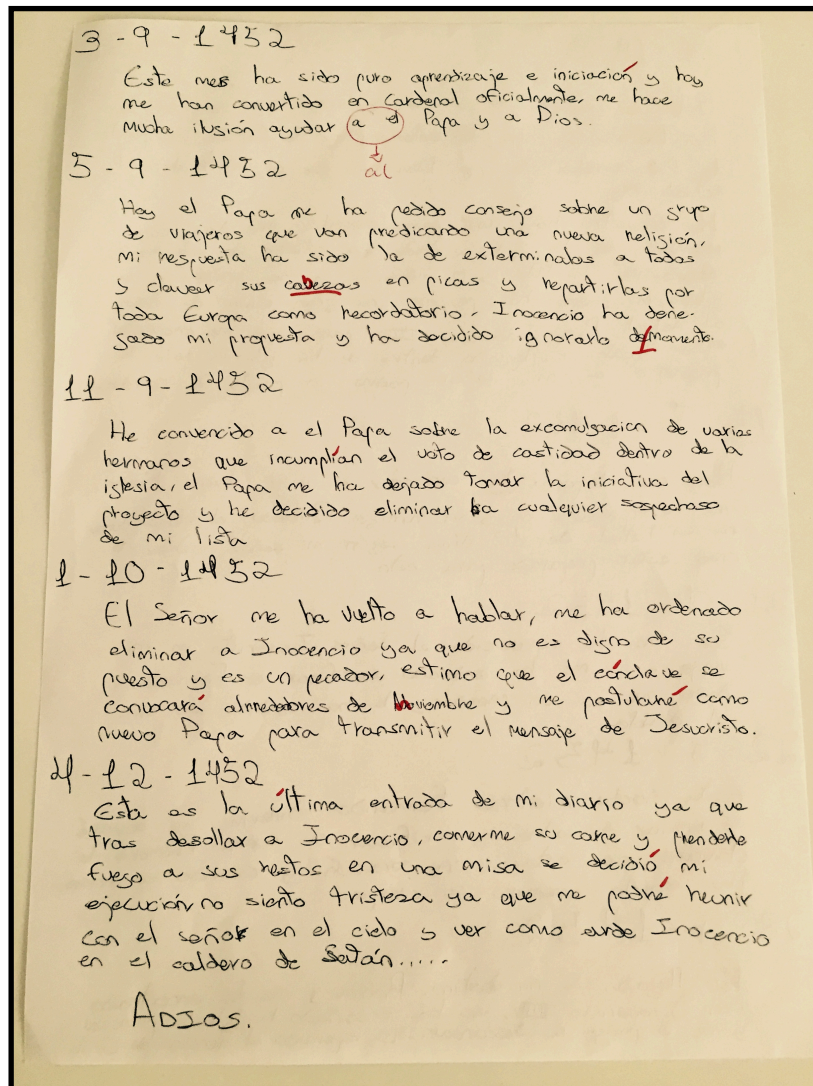 3-9-1452
Este mes ha sido puro aprendizaje e iniciación y hoy
me han convertido en Cardenal oficialmente, me hace
mucha ilusión ayudar a el Papa y a Dios.
al
5-9-1452
Hoy el Papa me ha pedido consejo sobre un grupo
de viajeros que van predicando una nueva religión,
mi respuesta ha sido la de exterminalos a todos
y clavear sus cabezas en picas y repartirlas por
toda Europa como recordatorio. Inocencio ha dene-
gado mi propuesta y ha decidido ignorarlo de momento.
11-9-1452
He convencido a el Papa sobre la excomulgación de varios
hermanos que incumplían el voto de castidad dentro de la
iglesia, el Papa me ha dejado tomar la iniciativa del
proyecto y he decidido eliminar a cualquier sospechoso
de mi lista
1-10-1452
El Señor me ha vuelto a hablar, me ha ordenado
eliminar a Inocencio ya que no es digno de su
puesto y es un pecador, estimo que el cónclave se
convocará alrrededores de Noviembre y me postularé como
nuevo Papa para transmitir el mensaje de Jesucristo.
4-12-1452
Esta es la última entrada de mi diario ya que
tras desollar a Inocencio, comerme su carne y prenderle
fuego a sus restos en una misa se decidió mi
ejecución no siento tristeza ya que me podré reunir
con el señor en el cielo y ver como arde Inocencio
en el caldero de Satán.....
ADIOS.